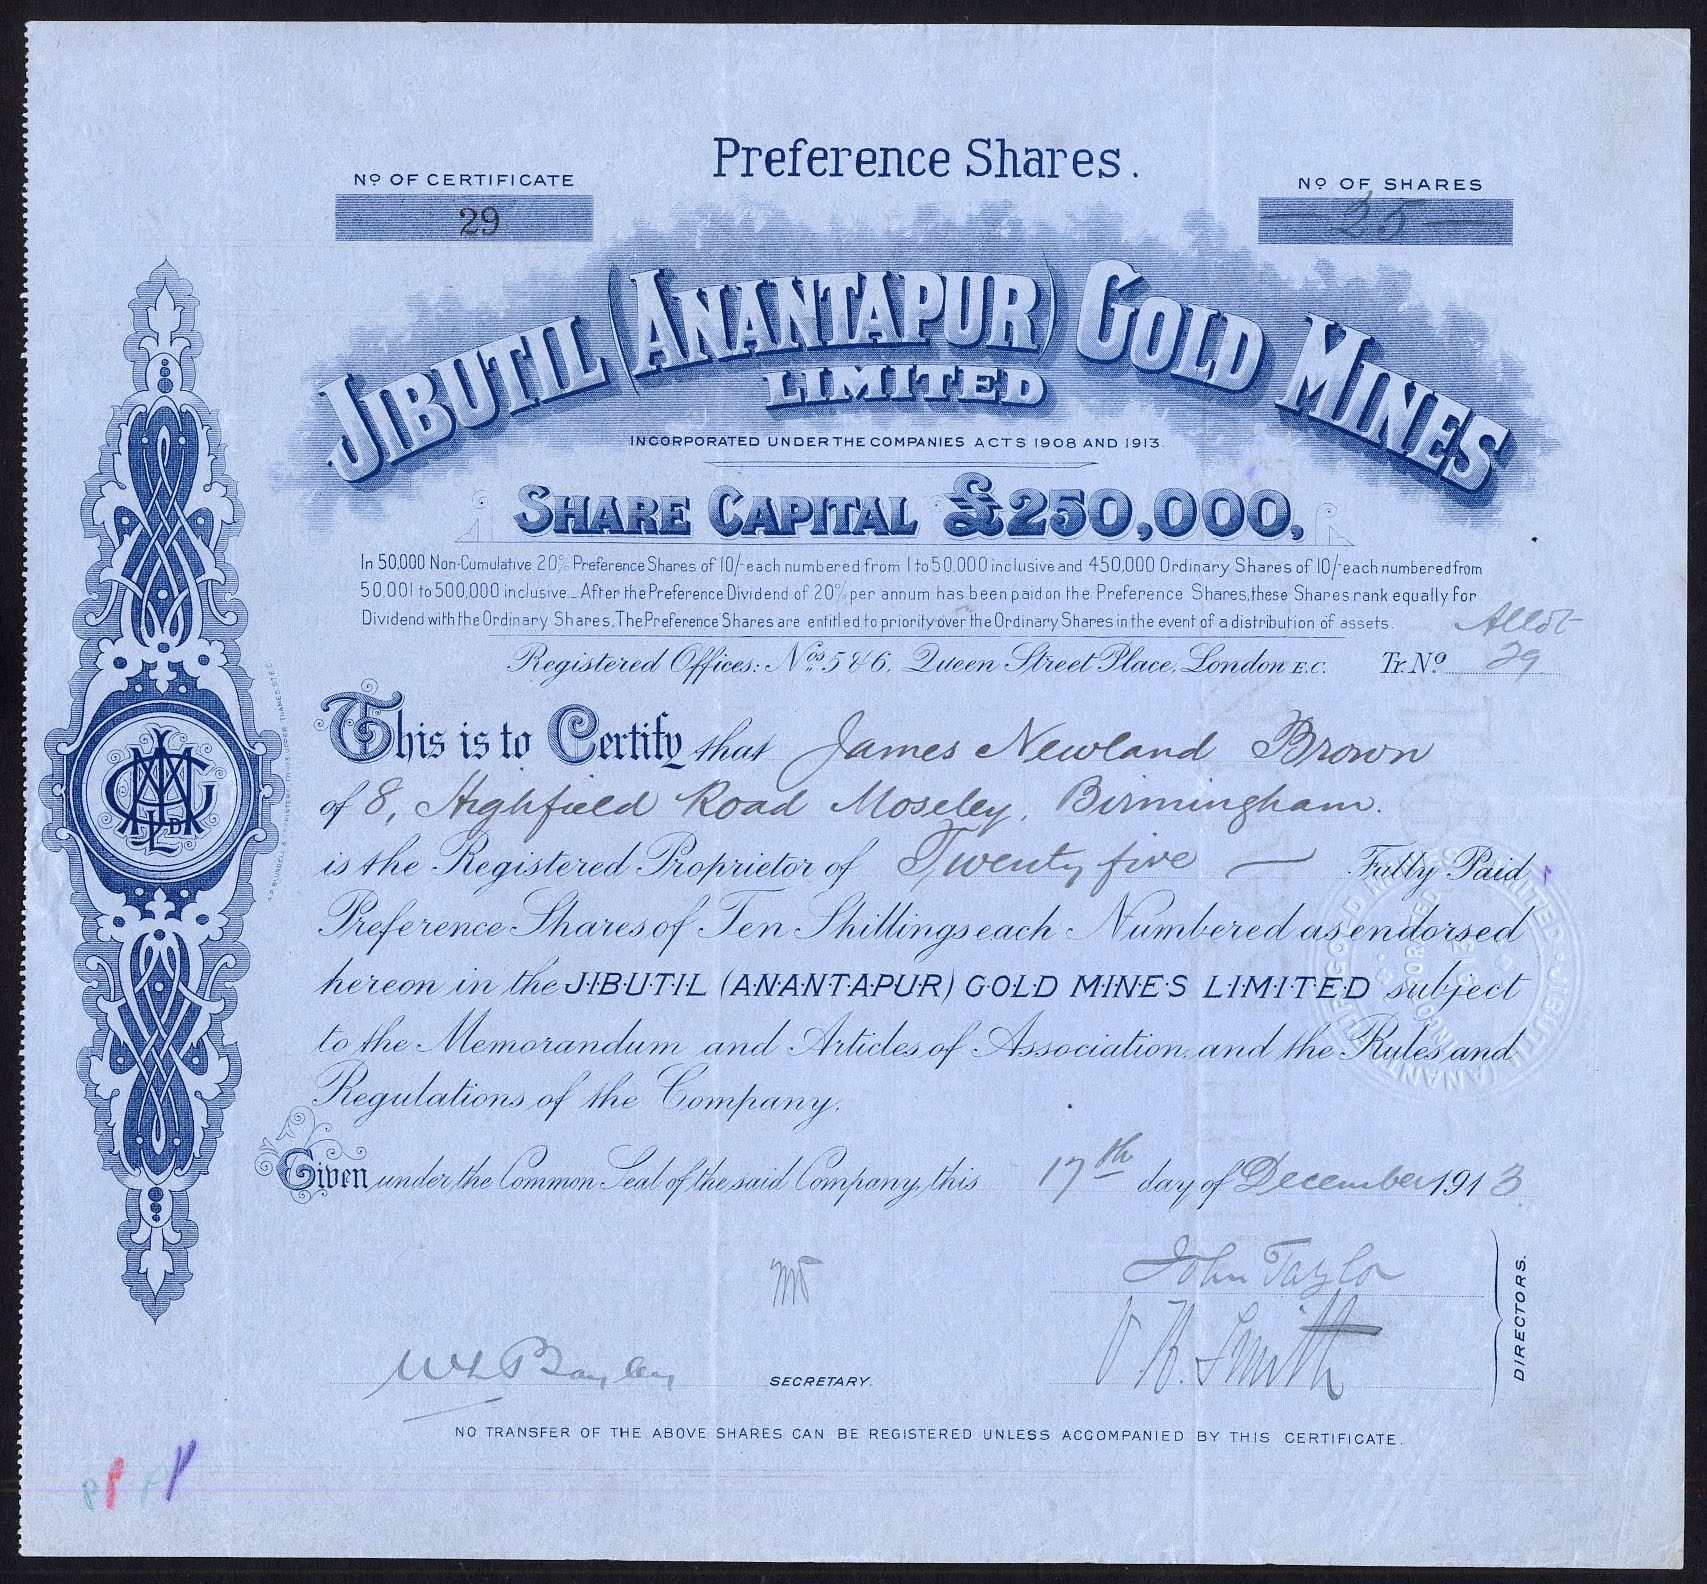 Preference Shares.
Nº OF CERTIFICATE
29
Nº OF SHARES
— 25 —
JIBUTIL (ANANTAPUR) GOLD MINES
LIMITED
INCORPORATED UNDER THE COMPANIES ACTS 1908 AND 1913.
SHARE CAPITAL £250,000,
In 50,000 Non-Cumulative 20% Preference Shares of 10/- each numbered from 1 to 50,000 inclusive and 450,000 Ordinary Shares of 10/- each numbered from
50,001 to 500,000 inclusive._ After the Preference Dividend of 20% per annum has been paid on the Preference Shares, these Shares rank equally for
Dividend with the Ordinary Shares. The Preference Shares are entitled to priority over the Ordinary Shares in the event of a distribution of assets.
Allot
Registered Offices: Nos. 5 & 6, Queen Street Place, London E.C. Tr. Nº 29
This is to Certify that James Newland Brown
of 8, Highfield Road Moseley, Birmingham.
is the Registered Proprietor of Twenty five — Fully Paid
Preference Shares of Ten Shillings each Numbered as endorsed
hereon in the J·I·B·U·T·I·L (A·N·A·N·T·A·P·U·R) G·O·L·D M·I·N·E·S L·I·M·I·T·E·D subject
to the Memorandum and Articles of Association and the Rules and
Regulations of the Company.
Given under the Common Seal of the said Company, this 17th day of December 1913
John Taylor
W L Bayley
SECRETARY.
Smith
DIRECTORS.
NO TRANSFER OF THE ABOVE SHARES CAN BE REGISTERED UNLESS ACCOMPANIED BY THIS CERTIFICATE.